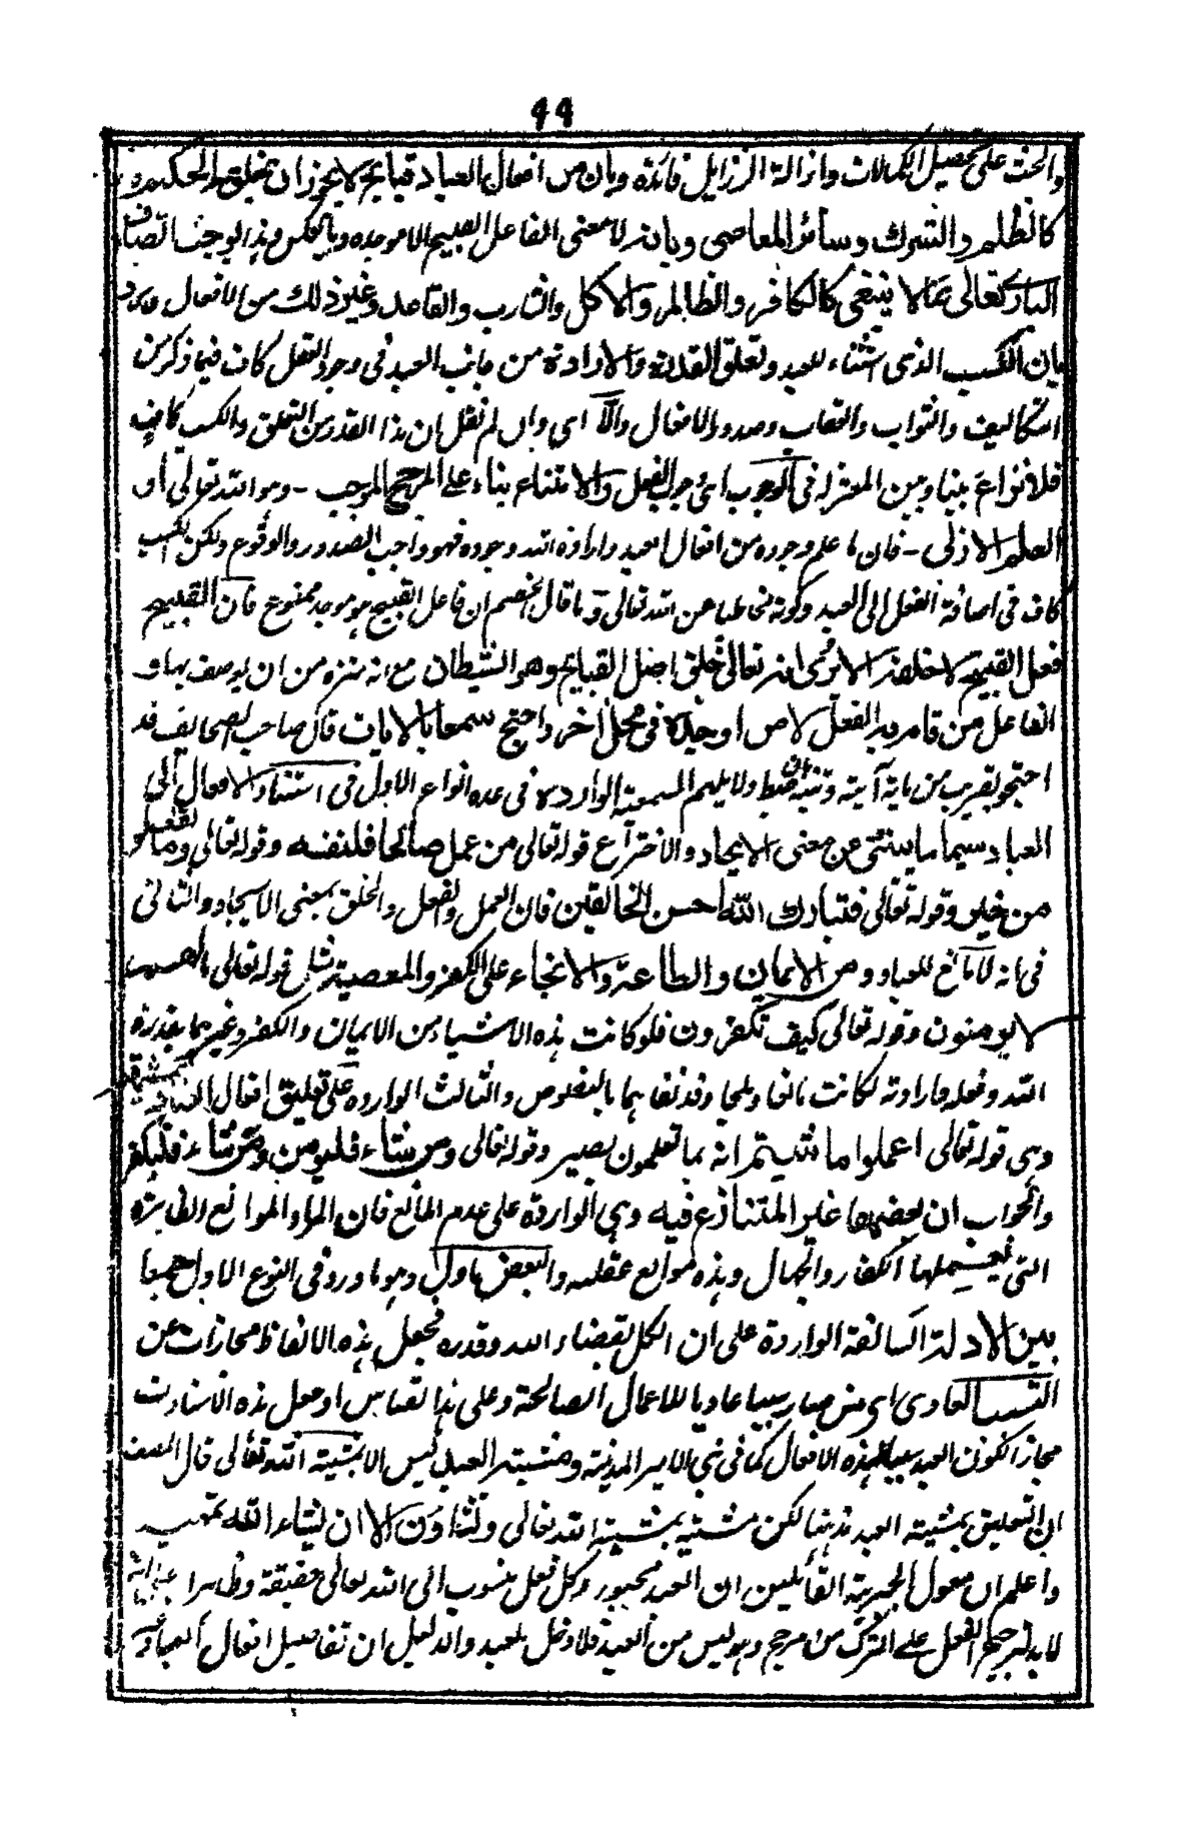 ۹۹
والحث على تحصيل الكمالات وازالة الرزايل فائدة وبان من افعال العباد قبايح لا يجوز ان يخلقها الحكيم
كالظلم والشرك وسائر المعاصى وبانه لا معنى الفاعل القبيح الا موجده وبالعكس وبهذا يوجب اتصاف
البارى تعالى بما لا ينبغى كالكافر والظالم والآكل والشارب والقاعد وغير ذلك من الافعال
بان الكسب الذى اثبتناه للعبد وتعلق القدرة والارادة من جانب العبد فى وجود الفعل كاف فيما ذكر من
التكاليف والثواب والعقاب وصدور الافعال والا اى وان لم نقل ان هذا القدر من التعلق والكسب كاف
فلا نزاع بيننا وبين المعتزلة فى الوجوب اى وجوب الفعل والامتناع بناء على المرجح الموجب - وهو الله تعالى او
العلم الازلى - فان ما علم وجوده من افعال العبد واراده الله وجوده فهو واجب الصدور والوقوع ولكن الكسب
كاف فى اضافة الفعل الى العبد وكونه مخاطبا عن الله تعالى وما قال الخصم ان فاعل القبيح هو موجده ممنوع فان القبيح
فعل القبيح لا خلقه الا ترى انه تعالى خلق اصل القبايح وهو الشيطان مع انه منزه من ان يوصف بها و
الفاعل من قام به الفعل لا من اوجده فى محل آخر واحتج سمعا بالآيات قال صاحب الصحايف قد
احتجوا بقريب من ماية آية ولايلهم السمعية الواردة فى عدة انواع الاول فى استناد الافعال الى
العباد سيما ما ينبئ عن معنى الايجاد والاختراع قوله تعالى من عمل صالحا فلنفسه وقوله تعالى وما تفعلوا
من خير وقوله تعالى فتبارك الله احسن الخالقين فان العمل والفعل والخلق بمعنى الايجاد والثانى
فى انه لا مانع للعباد من الايمان والطاعة والالجاء على الكفر والمعصية مثل قوله تعالى فما لهم
لا يومنون وقوله تعالى كيف تكفرون فلو كانت هذه الاشياء من الايمان والكفر وغيرهما بقدرة
الله وفعله وارادته لكانت مانعا وملجا وقد نفاهما بالنصوص والثالث الواردة على تعليق افعال العباد بمشيتهم
وهى قوله تعالى اعملوا ما شيتم انه بما تعلمون بصير وقوله تعالى ومن شاء فليومن ومن شاء فليكفر
والجواب ان بعضها غير المتنازع فيه وهى الواردة على عدم المانع فان المراد الموانع الظاهرة
التى الكفار والجهال وهذه موانع عقلية والبعض ماول وهو ما ورد فى النوع الاول جمعا
بين الادلة السالفة الواردة على ان الكل بقضاء الله وقدره فجعل هذه الالفاظ مجازات عن
التسبب العادى اى من صار سببا عاديا للاعمال الصالحة وعلى هذا القياس او جعل هذه الاسنادات
مجازا لكون العبد سببا لهذه الافعال كما فى بنى الامير المدينة ومشية العبد ليس الا بمشية الله تعالى قال المصنف
ان التعليق بمشية العبد مذهبنا لكن مشيته بمشية الله تعالى وتشاؤن الا ان يشاء الله تمهيد
واعلم ان معول الجبرية القائلين ان العبد مجبور وكل فعل منسوب الى الله تعالى حقيقة وظاهرا
لا بد لترجيح الفعل على الترك من مرجح وهو ليس من العبد فلا دخل للعبد والدليل ان تفاصيل افعال العباد